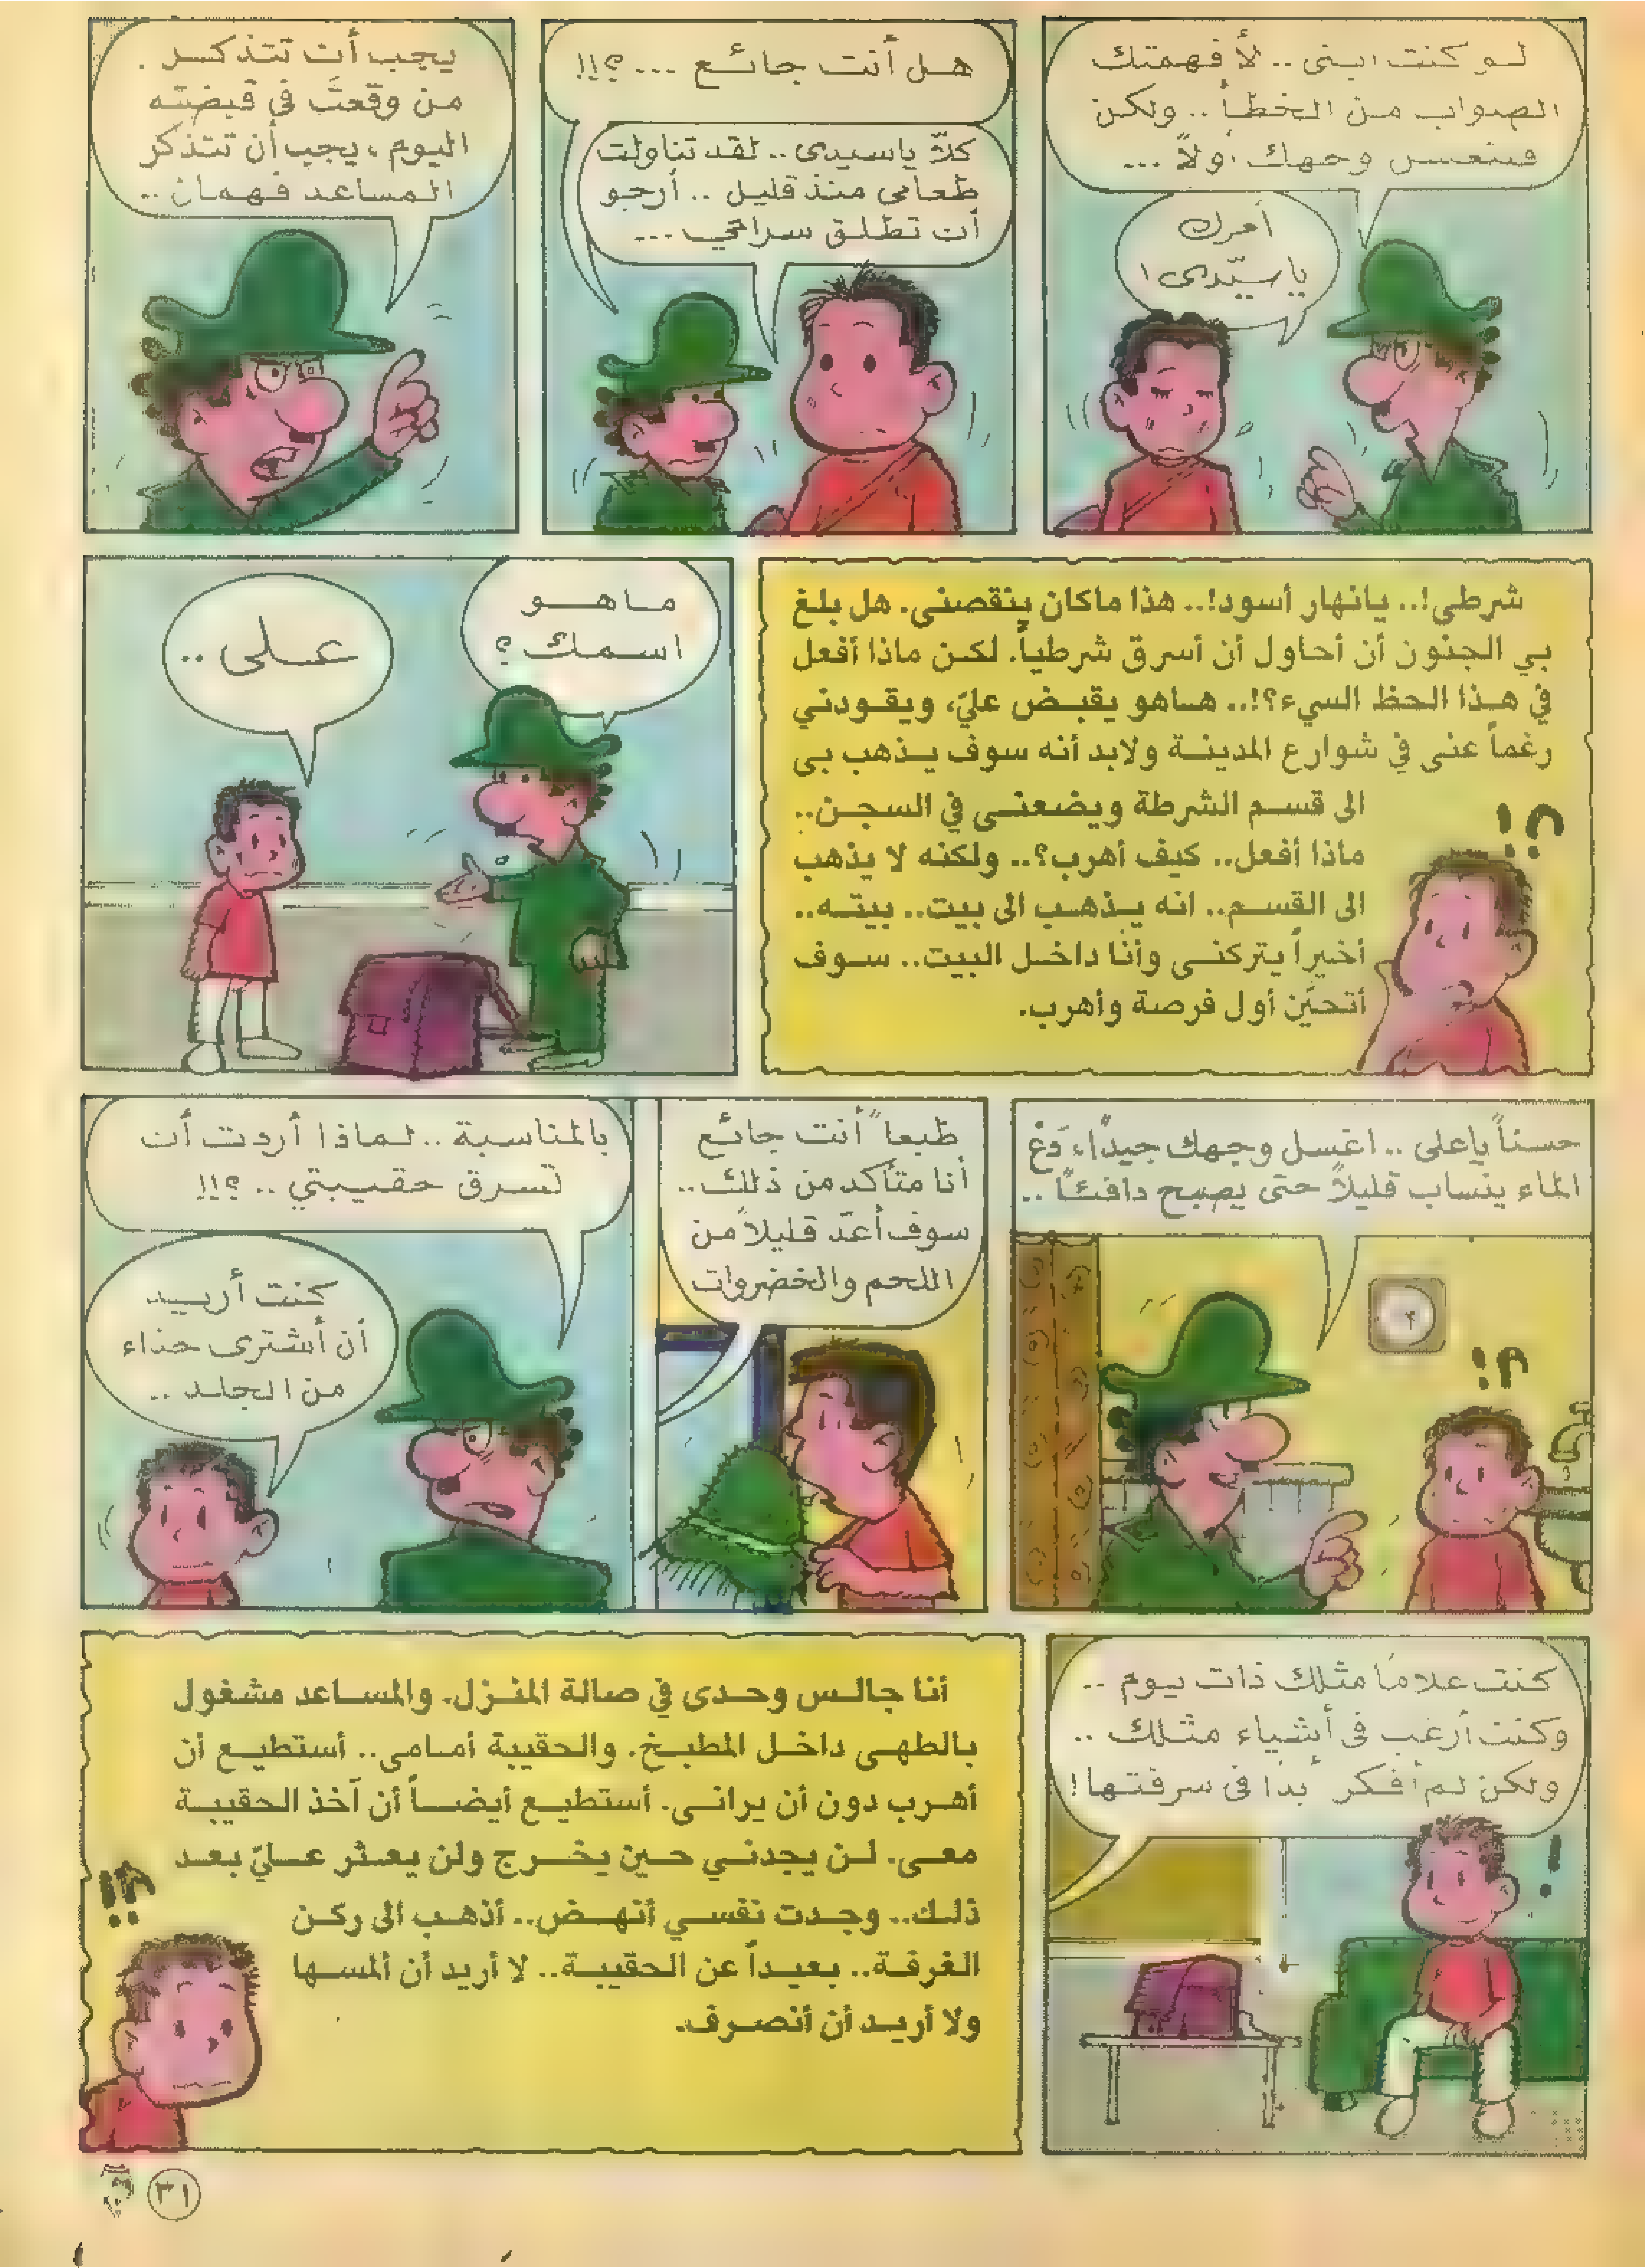 لو كنت ابنى .. لأفهمتك
الصواب من الخطأ .. ولكن
فلنغسل وجهك أولاً ...
أمرك
ياسيّدى !
هل أنت جائع ...؟!!
كلاّ ياسيدى .. لقد تناولت
طعامى منذ قليل .. أرجو
أن تطلق سراحي ...
يجب أن تتذكر .
من وقعتَ في قبضته
اليوم ، يجب أن تتذكر
المساعد فهمان ..
شرطى!.. يانهار أسود!.. هذا ماكان ينقصنى. هل بلغ
بي الجنون أن أحاول أن أسرق شرطياً. لكن ماذا أفعل
في هذا الحظ السيء؟!.. هاهو يقبض عليّ، ويقودني
رغماً عنى في شوارع المدينة ولابد أنه سوف يذهب بى
الى قسم الشرطة ويضعنى في السجن..
ماذا أفعل.. كيف أهرب؟.. ولكنه لا يذهب
الى القسم.. انه يذهب الى بيت.. بيته..
أخيراً يتركنى وأنا داخل البيت.. سوف
أتحيّن أول فرصة وأهرب.
؟!
ماهو
اسمك ؟
على ..
حسناً ياعلى .. اغسل وجهك جيداً، دَع
الماء ينساب قليلاً حتى يصبح دافئاً ..
؟!
طبعاً أنت جائع
أنا متأكد من ذلك ..
سوف أعدّ قليلاً من
اللحم والخضروات
بالمناسبة .. لماذا أردت أن
تسرق حقيبتي .. ؟!!
كنت أريد
أن أشترى حذاء
من الجلد ..
كنت غلاماً مثلك ذات يوم ..
وكنت أرغب فى أشياء مثلك ..
ولكن لم أفكر أبداً فى سرقتها !
!
أنا جالس وحدى في صالة المنزل. والمساعد مشغول
بالطهى داخل المطبخ. والحقيبة أمامى.. أستطيع أن
أهرب دون أن يرانى. أستطيع أيضاً أن آخذ الحقيبة
معى. لن يجدني حين يخرج ولن يعثر عليّ بعد
ذلك.. وجدت نفسي أنهض.. أذهب الى ركن
الغرفة.. بعيداً عن الحقيبة.. لا أريد أن ألمسها
ولا أريد أن أنصرف.
؟!!
٣١